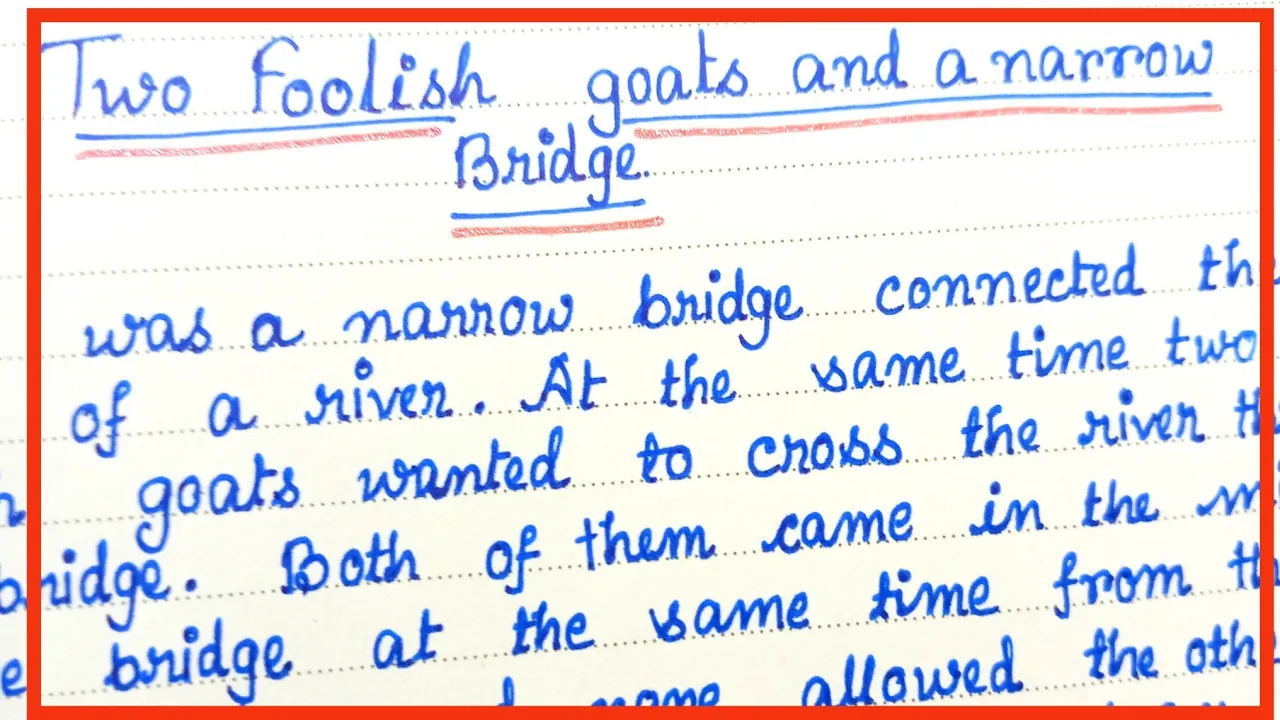 Two Foolish goats and a narrow
Bridge.
was a narrow bridge connected the
of a river. At the same time two
goats wanted to cross the river
bridge. Both of them came in the
bridge at the same time from
none allowed the